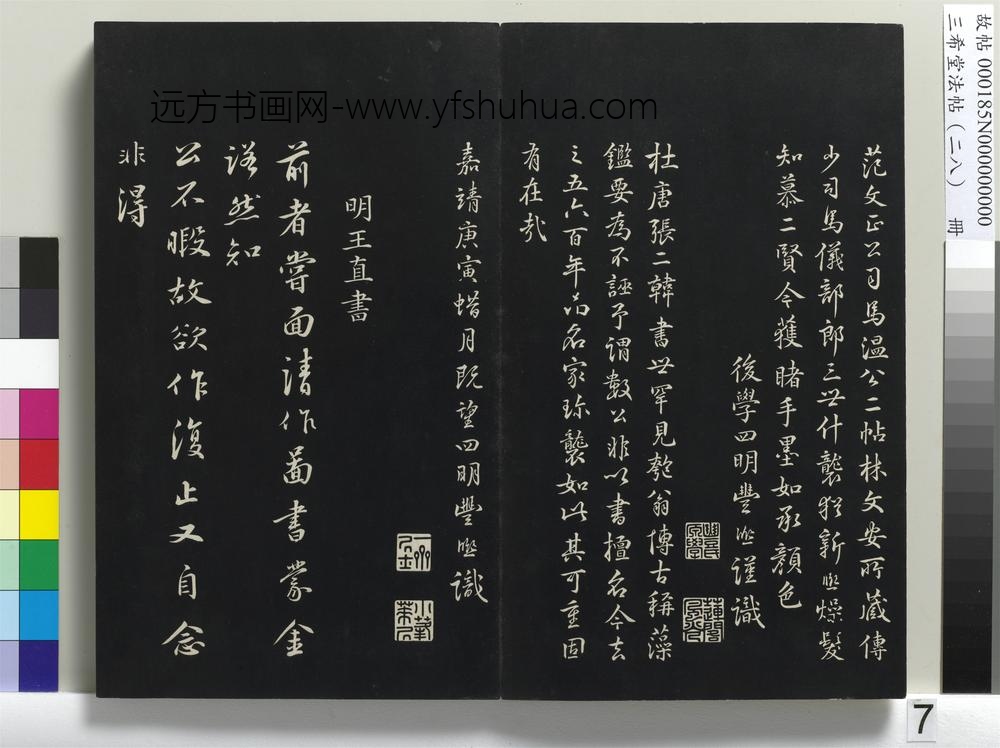 范文正公司馬溫公二帖林文安所藏傳
少司馬儀部郎三世什襲猶新熙燥髮
知慕二賢今獲睹手墨如承顏色
後學四明豐熙謹識
杜唐張二韓書世罕見匏翁博古稱藻
鑑要為不誣予謂數公非以書擅名今去
之五六百年而名家珎襲如此其可重固
有在哉
嘉靖庚寅蜡月既望四明豐熙識
明王直書
前者嘗面請作圖書蒙金
諾然知
公不暇故欲作復止又自念
非得
远方书画网-www.yfshuhua.com
故帖 000185N000000000
三希堂法帖(二八) 冊
7